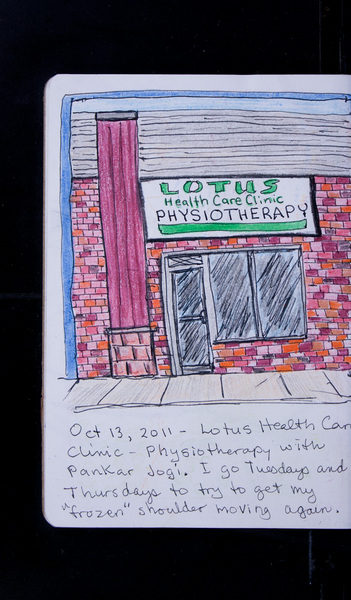 LOTUS
Health Care Clinic
PHYSIOTHERAPY
Oct 13, 2011 - Lotus Health Car
Clinic - Physiotherapy with
Pankar Jogi. I go Tuesdays and
Thursdays to try to get my
"frozen" shoulder moving again.